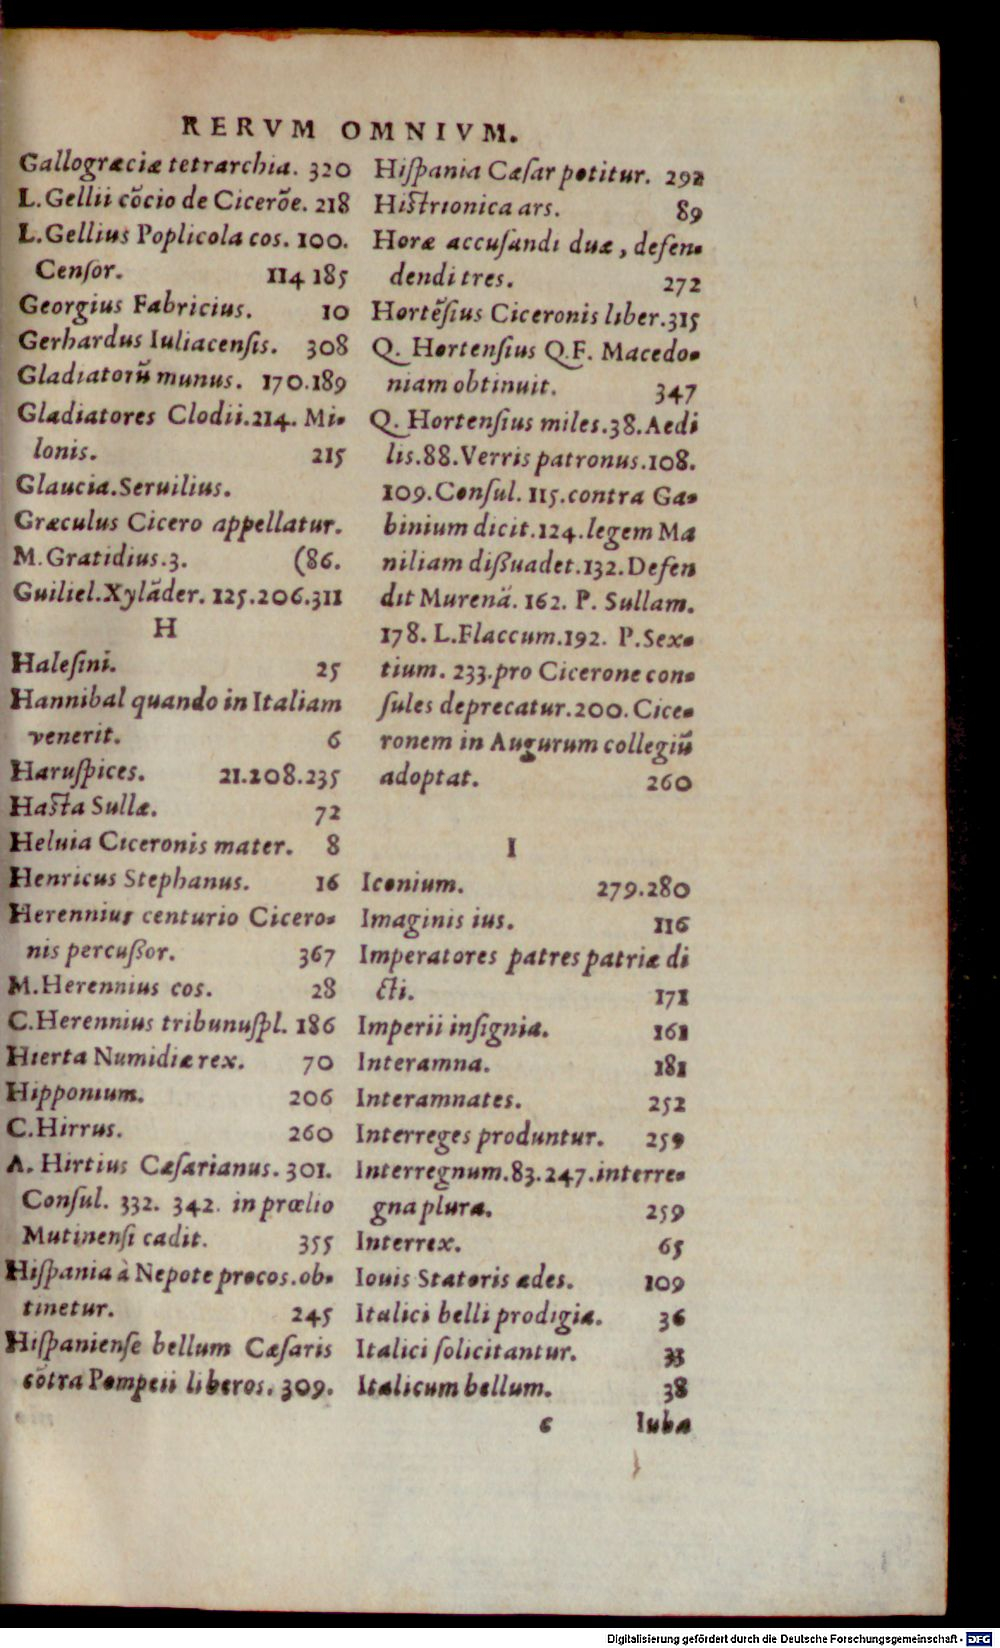 RERVM OMNIVM.
Gallogræciæ tetrarchia. 320
L. Gellii cōcio de Cicerōe. 218
L. Gellius Poplicola cos. 100.
Censor. 114 185
Georgius Fabricius. 10
Gerhardus Iuliacensis. 308
Gladiatorū munus. 170.189
Gladiatores Clodii.214. Mi-
lonis. 215
Glaucia.Seruilius.
Græculus Cicero appellatur.
M. Gratidius.3. (86.
Guiliel.Xylāder. 125.206.311
H
Halesini. 25
Hannibal quando in Italiam
venerit. 6
Haruſpices. 21.208.235
Haſta Sullæ. 72
Heluia Ciceronis mater. 8
Henricus Stephanus. 16
Herennius centurio Cicero-
nis percuſſor. 367
M. Herennius cos. 28
C. Herennius tribunuſpl. 186
Hierta Numidiæ rex. 70
Hipponium. 206
C. Hirrus. 260
A. Hirtius Cæſarianus. 301.
Conſul. 332. 342. in prœlio
Mutinenſi cadit. 355
Hiſpania à Nepote procos.ob-
tinetur. 245
Hiſpanienſe bellum Cæſaris
cōtra Pompeii liberos. 309.
Hiſpania Cæſar potitur. 292
Hiſtrionica ars. 89
Horæ accuſandi duæ, defen-
dendi tres. 272
Hortēſius Ciceronis liber.315
Q. Hortenſius Q.F. Macedo-
niam obtinuit. 347
Q. Hortenſius miles.38.Aedi
lis.88.Verris patronus.108.
109.Conſul. 115.contra Ga-
binium dicit.124.legem Ma
niliam diſſuadet.132.Defen
dit Murenā. 162. P. Sullam.
178. L.Flaccum.192. P.Sex-
tium. 233.pro Cicerone con-
ſules deprecatur.200. Cice-
ronem in Augurum collegiū
adoptat. 260
I
Iconium. 279.280
Imaginis ius. 116
Imperatores patres patriæ di
cti. 171
Imperii inſignia. 161
Interamna. 181
Interamnates. 252
Interreges produntur. 259
Interregnum.83.247.interre-
gna plura. 259
Interrex. 65
Iouis Statoris ædes. 109
Italici belli prodigia. 36
Italici ſolicitantur. 33
Italicum bellum. 38
c Iuba
Digitalisierung gefördert durch die Deutsche Forschungsgemeinschaft - DFG